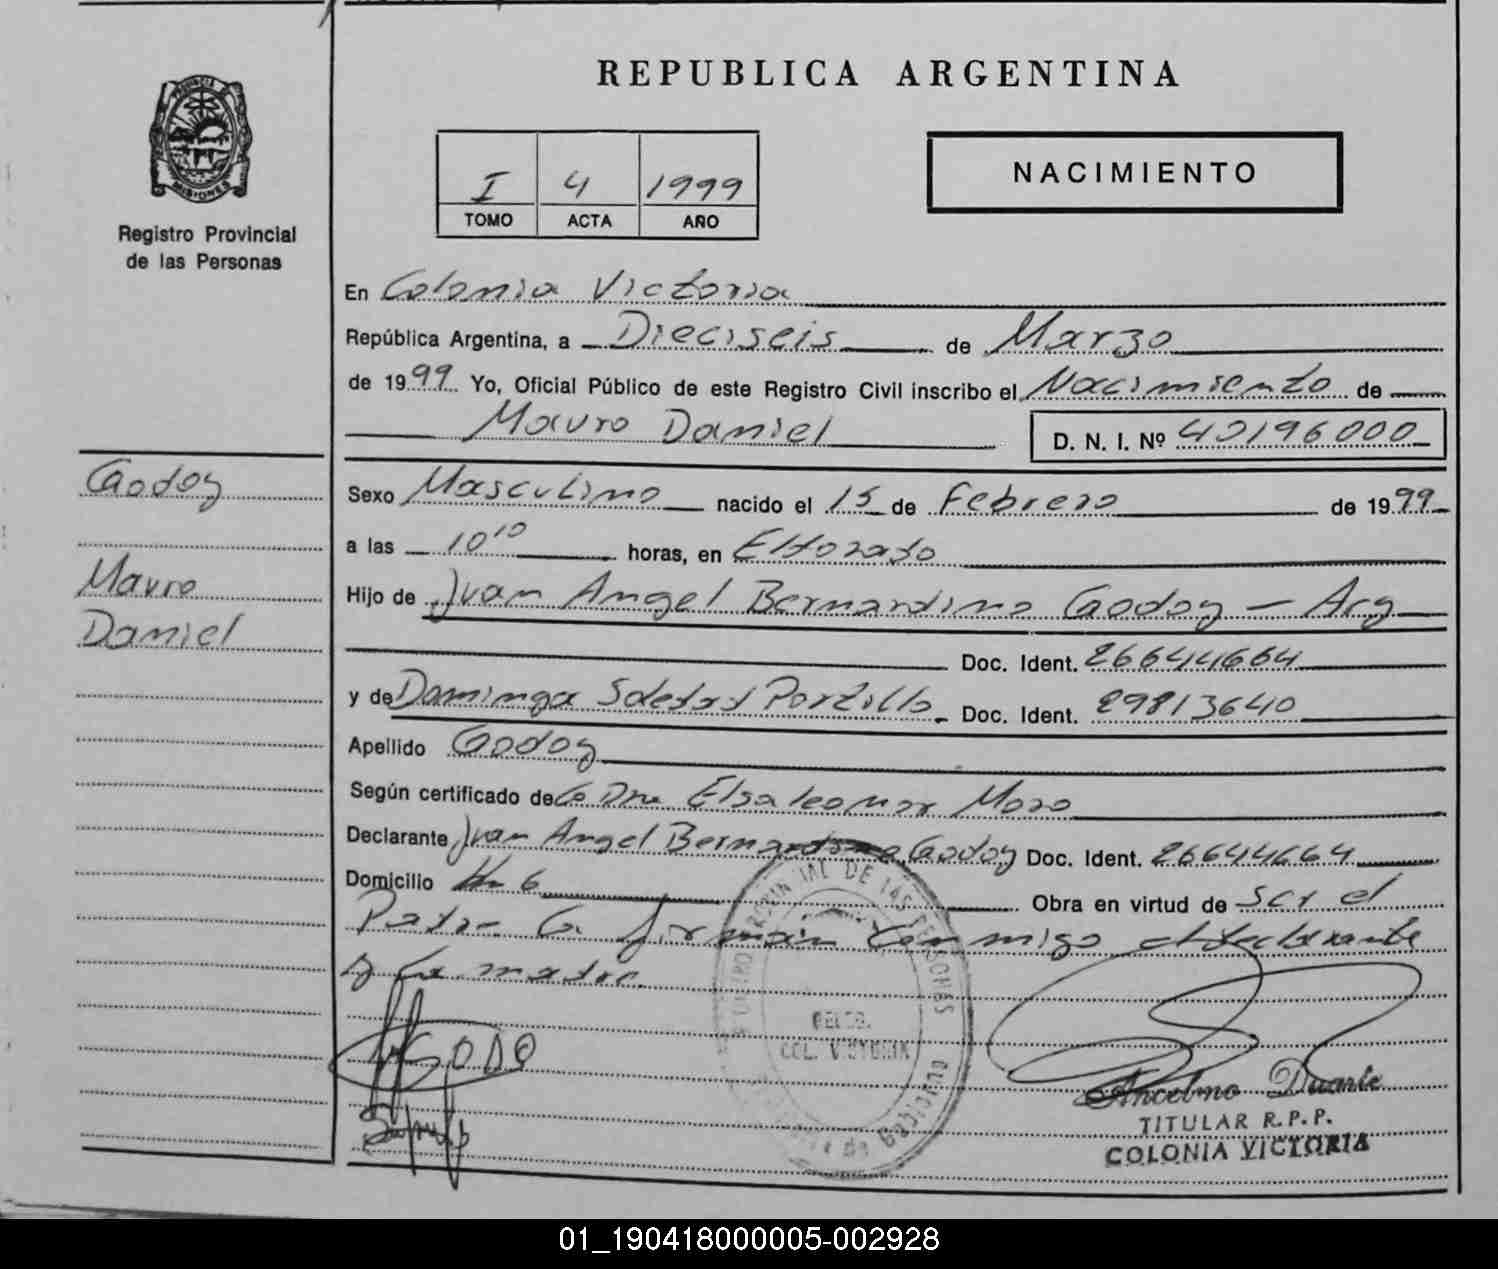 REPUBLICA ARGENTINA
PROVINCIA DE
MISIONES
Registro Provincial
de las Personas
I 4 1999
TOMO ACTA AÑO
NACIMIENTO
En Colonia Victoria
República Argentina, a Dieciseis de Marzo
de 1999 Yo, Oficial Público de este Registro Civil inscribo el Nacimiento de
Mauro Daniel D. N. I. Nº 40196000
Godoy
Mauro
Daniel
Sexo Masculino nacido el 15 de Febrero de 1999
a las 10¹⁰ horas, en Eldorado
Hijo de Juan Angel Bernardino Godoy - Arg
Doc. Ident. 26644664
y de Dominga Soledad Portillo Doc. Ident. 29813640
Apellido Godoy
Según certificado de La Dra Elsa Leonor Moro
Declarante Juan Angel Bernardino Godoy Doc. Ident. 26644664
Domicilio 6 Obra en virtud de ser el
Padre firman conmigo el declarante
y la madre.
GODO
DELEG.
COL. VICTORIA
Ancelmo Duarte
TITULAR R.P.P.
COLONIA VICTORIA
01_190418000005-002928